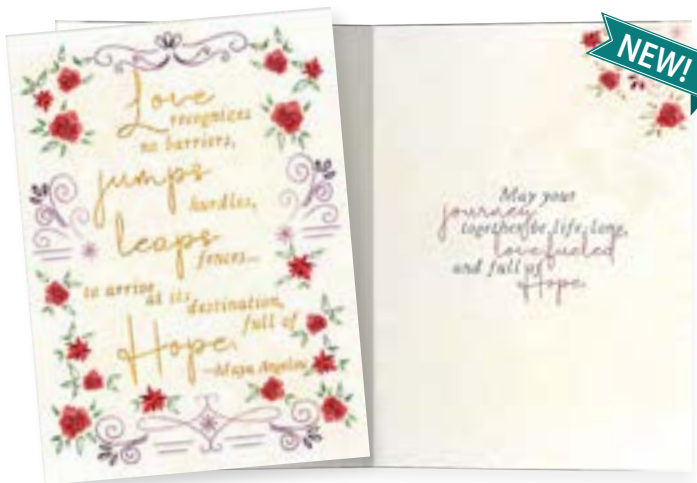 Love
recognizes
no barriers,
jumps
hurdles,
leaps
fences...
to arrive at its
destination,
full of
Hope.
—Maya Angelou
NEW!
May your
journey
together be life-long,
love-fueled
and full of
Hope.